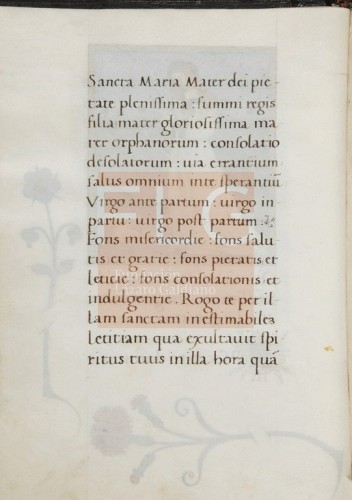 Sancta Maria Mater dei pie-
tate plenissima : summi regis
filia mater gloriosissima ma
ter orphanorum : consolatio
desolatorum : via errantium
salus omnium in te sperantiū
Virgo ante partum : virgo in
partu : virgo post partum :
Fons misericordie : fons salu-
tis et gratie : fons pietatis et
leticie : fons consolationis et
indulgentie . Rogo te per il-
lam sanctam inestimabilez
letitiam qua exultavit spi
ritus tuus in illa hora quā
Fundación
Lázaro Galdiano